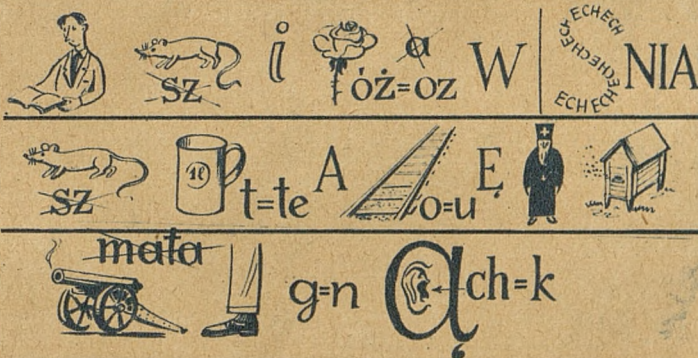 sz i óż=oz a W ECHECH ECHECHECH ECHECH NIA
sz 1l t=te A o=u Ę
mata g=n ą ch=k